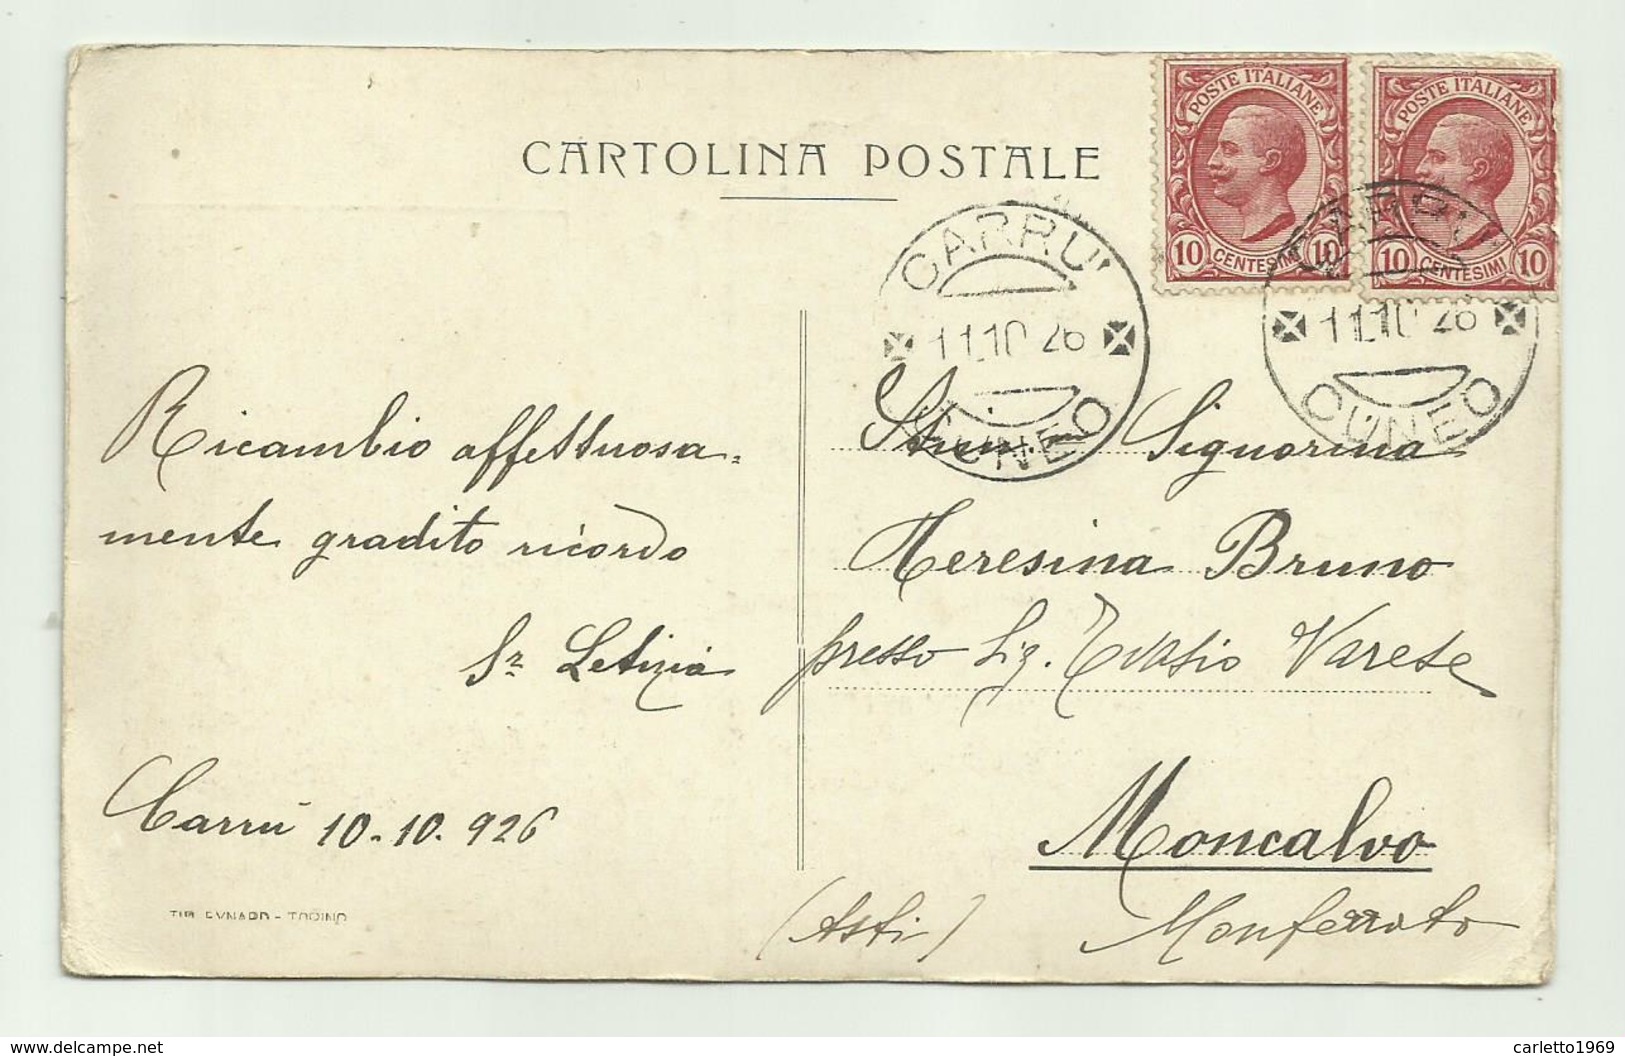 CARTOLINA POSTALE
POSTE ITALIANE
10 CENTESIMI 10
POSTE ITALIANE
10 CENTESIMI 10
CARRU'
11.10 26
CUNEO
CARRU'
11.10 26
CUNEO
Ricambio affettuosa=
mente gradito ricordo
Sr Letizia
Carrù 10-10. 926
Signorina
Teresina Bruno
presso Sig. Evasio Varese
Moncalvo
(Asti) Monferrato
TORINO
delcampe.net
carletto1969